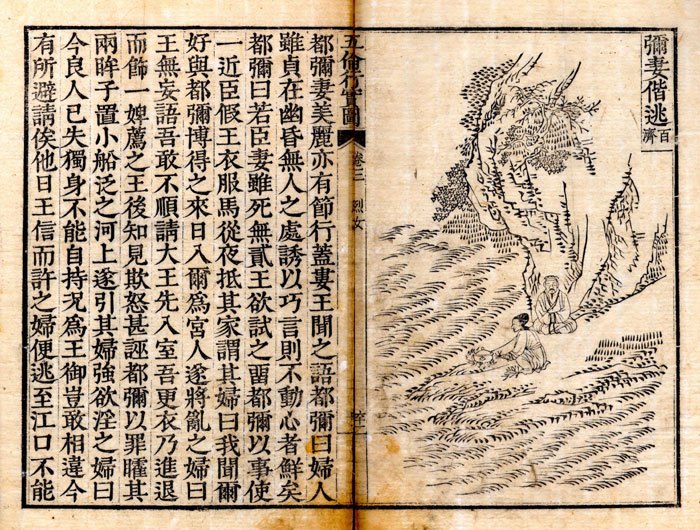 彌妻偕逃
百濟
五倫行實圖
卷三
烈女
都彌妻美麗亦有節行蓋婁王聞之語都彌曰婦人
雖貞在幽昏無人之處誘以巧言則不動心者鮮矣
都彌曰若臣妻雖死無貳王欲試之留都彌以事使
一近臣假王衣服馬從夜抵其家謂其婦曰我聞爾
好與都彌博得之來日入爾爲宮人遂將亂之婦曰
王無妄語吾敢不順請大王先入室吾更衣乃進退
而飾一婢薦之王後知見欺怒甚誣都彌以罪矐其
兩眸子置小船泛之河上遂引其婦強欲淫之婦曰
今良人已失獨身不能自持況爲王御豈敢相違今
有所避請俟他日王信而許之婦便逃至江口不能